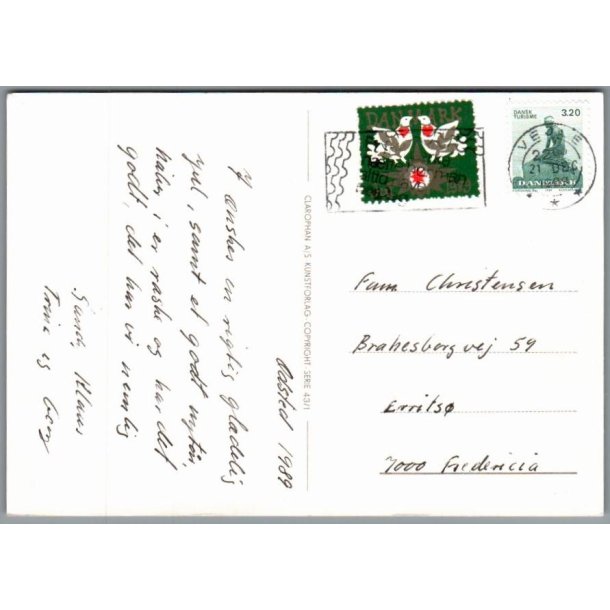 DANMARK
1974
DANSK
TURISME
3.20
DANMARK
VEJLE
21 DEC
CLAROPHAN A/S KUNSTFORLAG COPYRIGHT SERIE 43/1
Rolsted 1989
I ønskes en rigtig glædelig
jul, samt et godt nytår,
håber i er raske og har det
godt, det har vi nemlig
Gunda, Klaus
Trine og
Fam Christensen
Brahesborgvej 59
Erritsø
7000 Fredericia